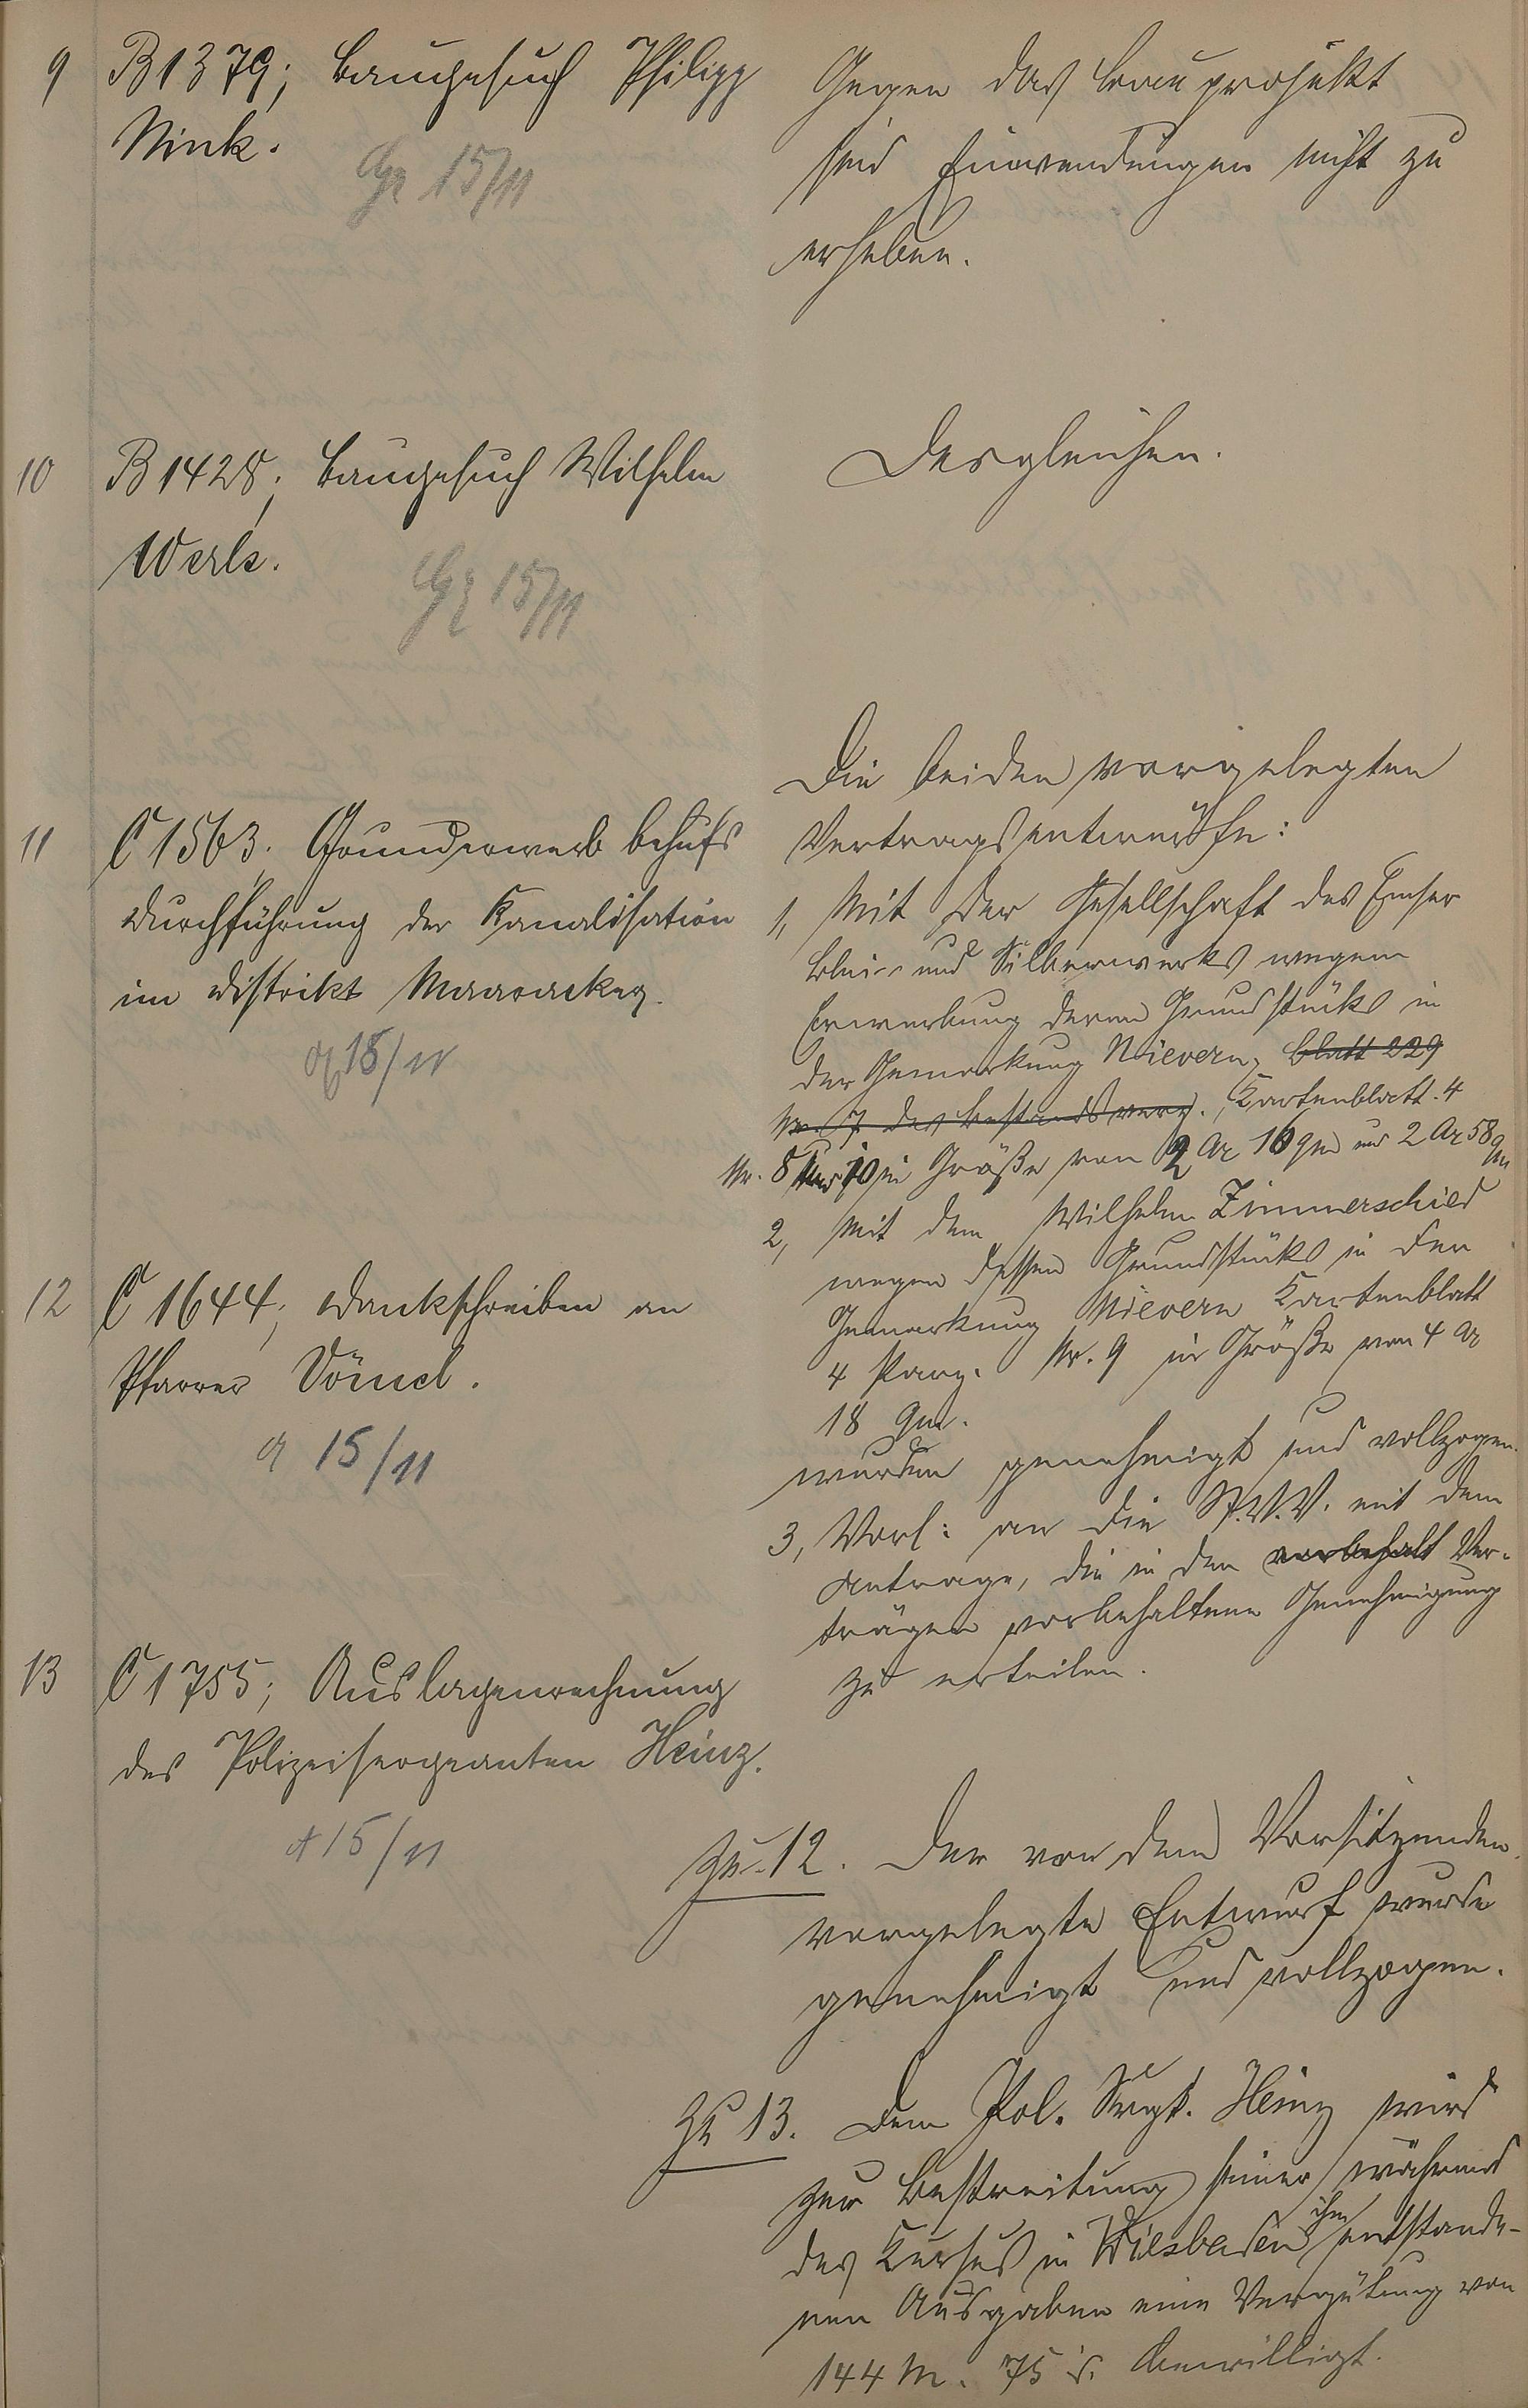 9 B 1379; Baugesuch Philipp
Nink.
15/11
Gegen das Bauprojekt
sind Einwendungen nicht zu
erheben.
10 B 1428; Baugesuch Wilhelm
Werle.
15/11
Desgleichen.
11 C 1563. Grunderwerb behufs
Durchführung der Kanalisation
im Distrikt Maaracker.
15/11
Die beiden vorgelegten
Vertragsentwürfe:
1, Mit der Gesellschaft des Emser
Blei- und Silberwerks wegen
Erwerbung deren Grundstücks in
der Gemarkung Nievern, Blatt 229
Nr. 7 des Bestandsverz., Kartenblatt 4
Nr. 8 und 10 in Größe von 2 Ar 16 qm und 2 Ar 58 qm
2, Mit dem Wilhelm Zimmerschied
wegen dessen Grundstücks in der
Gemarkung Nievern Kartenblatt
4 Parz. Nr. 9 in Größe von 4 Ar
18 qm.
wurden genehmigt und vollzogen.
3, Vorl: an die St.V.V. mit dem
Antrage, die in den vorbehalt Ver-
trägen vorbehaltene Genehmigung
zu erteilen.
12 C 1644; Dankschreiben an
Pfarrer Vömel.
15/11
13 C 1755; Auslagenrechnung
des Polizeisergeanten Heinz.
15/11
Zu 12. Der von dem Vorsitzenden
vorgelegte Entwurf wurde
genehmigt und vollzogen.
Zu 13. Dem Pol. Sergt. Heinz wird
zur Bestreitung seiner während
des Kursus in Wiesbaden ihm entstande-
nen Ausgaben eine Vergütung von
144 M. 75 d. bewilligt.